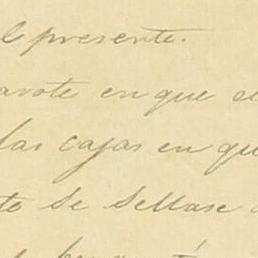 l presente.
avote en que se
las cajas en qu
to se sellase